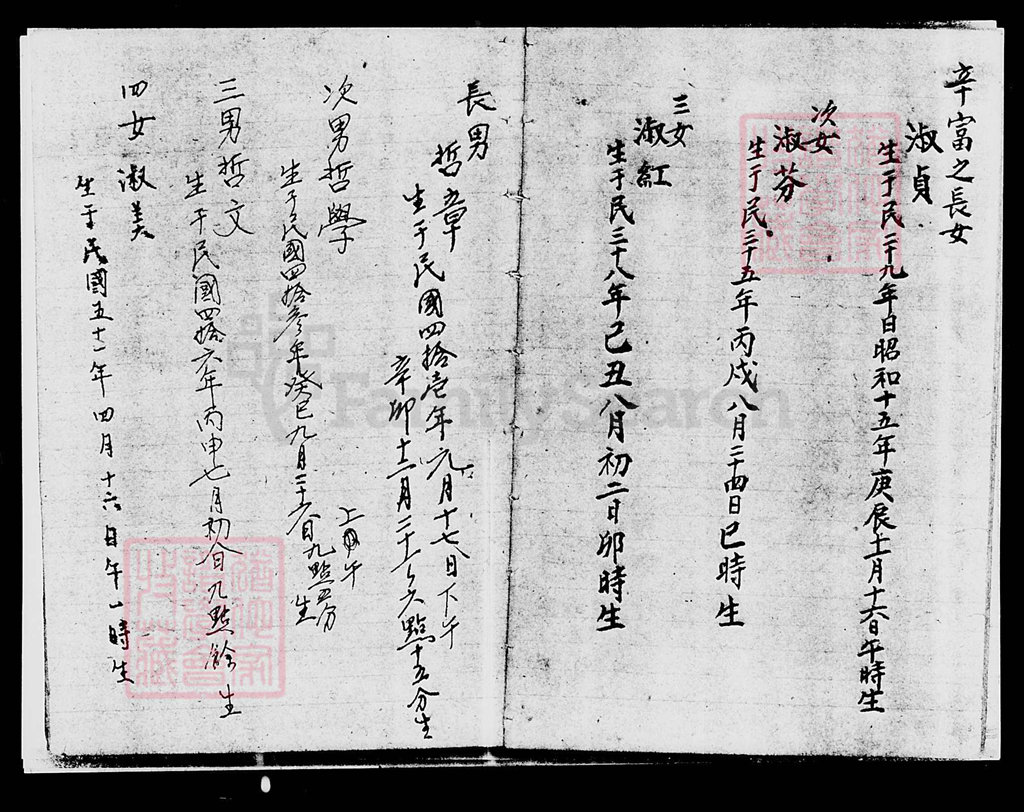 辛富之長女
淑貞
生于民二十九年日昭和十五年庚辰十一月十六日午時生
次女
淑芬
生于民三十五年丙戌八月二十四日巳時生
三女
淑紅
生于民三十八年己丑八月初二日卯時生
長男
哲章
生于民國四拾壱年元月十七日下午
辛卯十二月二十一 六點十五分生
次男哲學
生于民國四拾參年癸巳九月二十六日九點五分生
上午
三男哲文
生于民國四拾六年丙申七月初八日九點餘生
四女淑美
生于民國五十一年四月十六日午一時生
FamilySearch